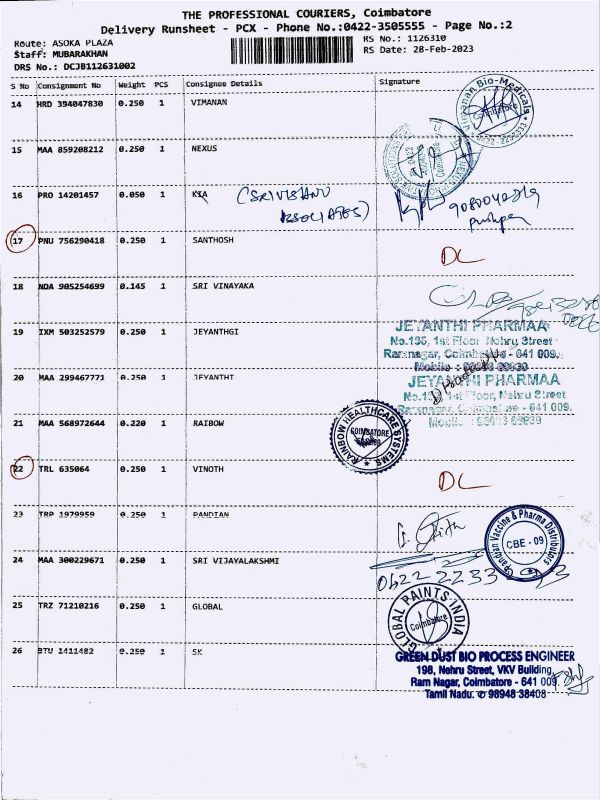 THE PROFESSIONAL COURIERS, Coimbatore
Delivery Runsheet - PCX - Phone No.:0422-3505555 - Page No.:2
Route: ASOKA PLAZA RS No.: 1126310
Staff: MUBARAKHAN RS Date: 28-Feb-2023
DRS No.: DCJB112631002
S No Consignment No Weight PCS Consignee Details Signature
14 HRD 394047830 0.250 1 VIMANAN
Coimbatore
15 MAA 859208212 0.250 1 NEXUS
16 PRO 14201457 0.050 1 KSA
17 PNU 756290418 0.250 1 SANTHOSH DL
18 NDA 905254699 0.145 1 SRI VINAYAKA
19 IXM 503252579 0.250 1 JEYANTHGI
JEYANTHI PHARMAA
No.135, 1st Floor, Nehru Street
Ramnagar, Coimbatore - 641 009.
20 MAA 299467771 0.250 1 JEYANTHT
JEYANTHI PHARMAA
1st Floor, Nehru Street
Ramnagar, Coimbatore - 641 009.
21 MAA 568972644 0.220 1 RAIBOW
RAINBOW HEALTHCARE SYSTEMS
COIMBATORE
22 TRL 635064 0.250 1 VINOTH DL
23 TRP 1979959 0.250 1 PANDIAN
Pandian Vaccine & Pharma Distributors
CBE - 09
24 MAA 300229671 0.250 1 SRI VIJAYALAKSHMI
25 TRZ 71210216 0.250 1 GLOBAL
GLOBAL PAINTS INDIA
Coimbatore
26 BTU 1411482 0.250 1 SK
GREEN DUST BIO PROCESS ENGINEER
198, Nehru Street, VKV Building,
Ram Nagar, Coimbatore - 641 009.
Tamil Nadu. ✆ 98948 38408